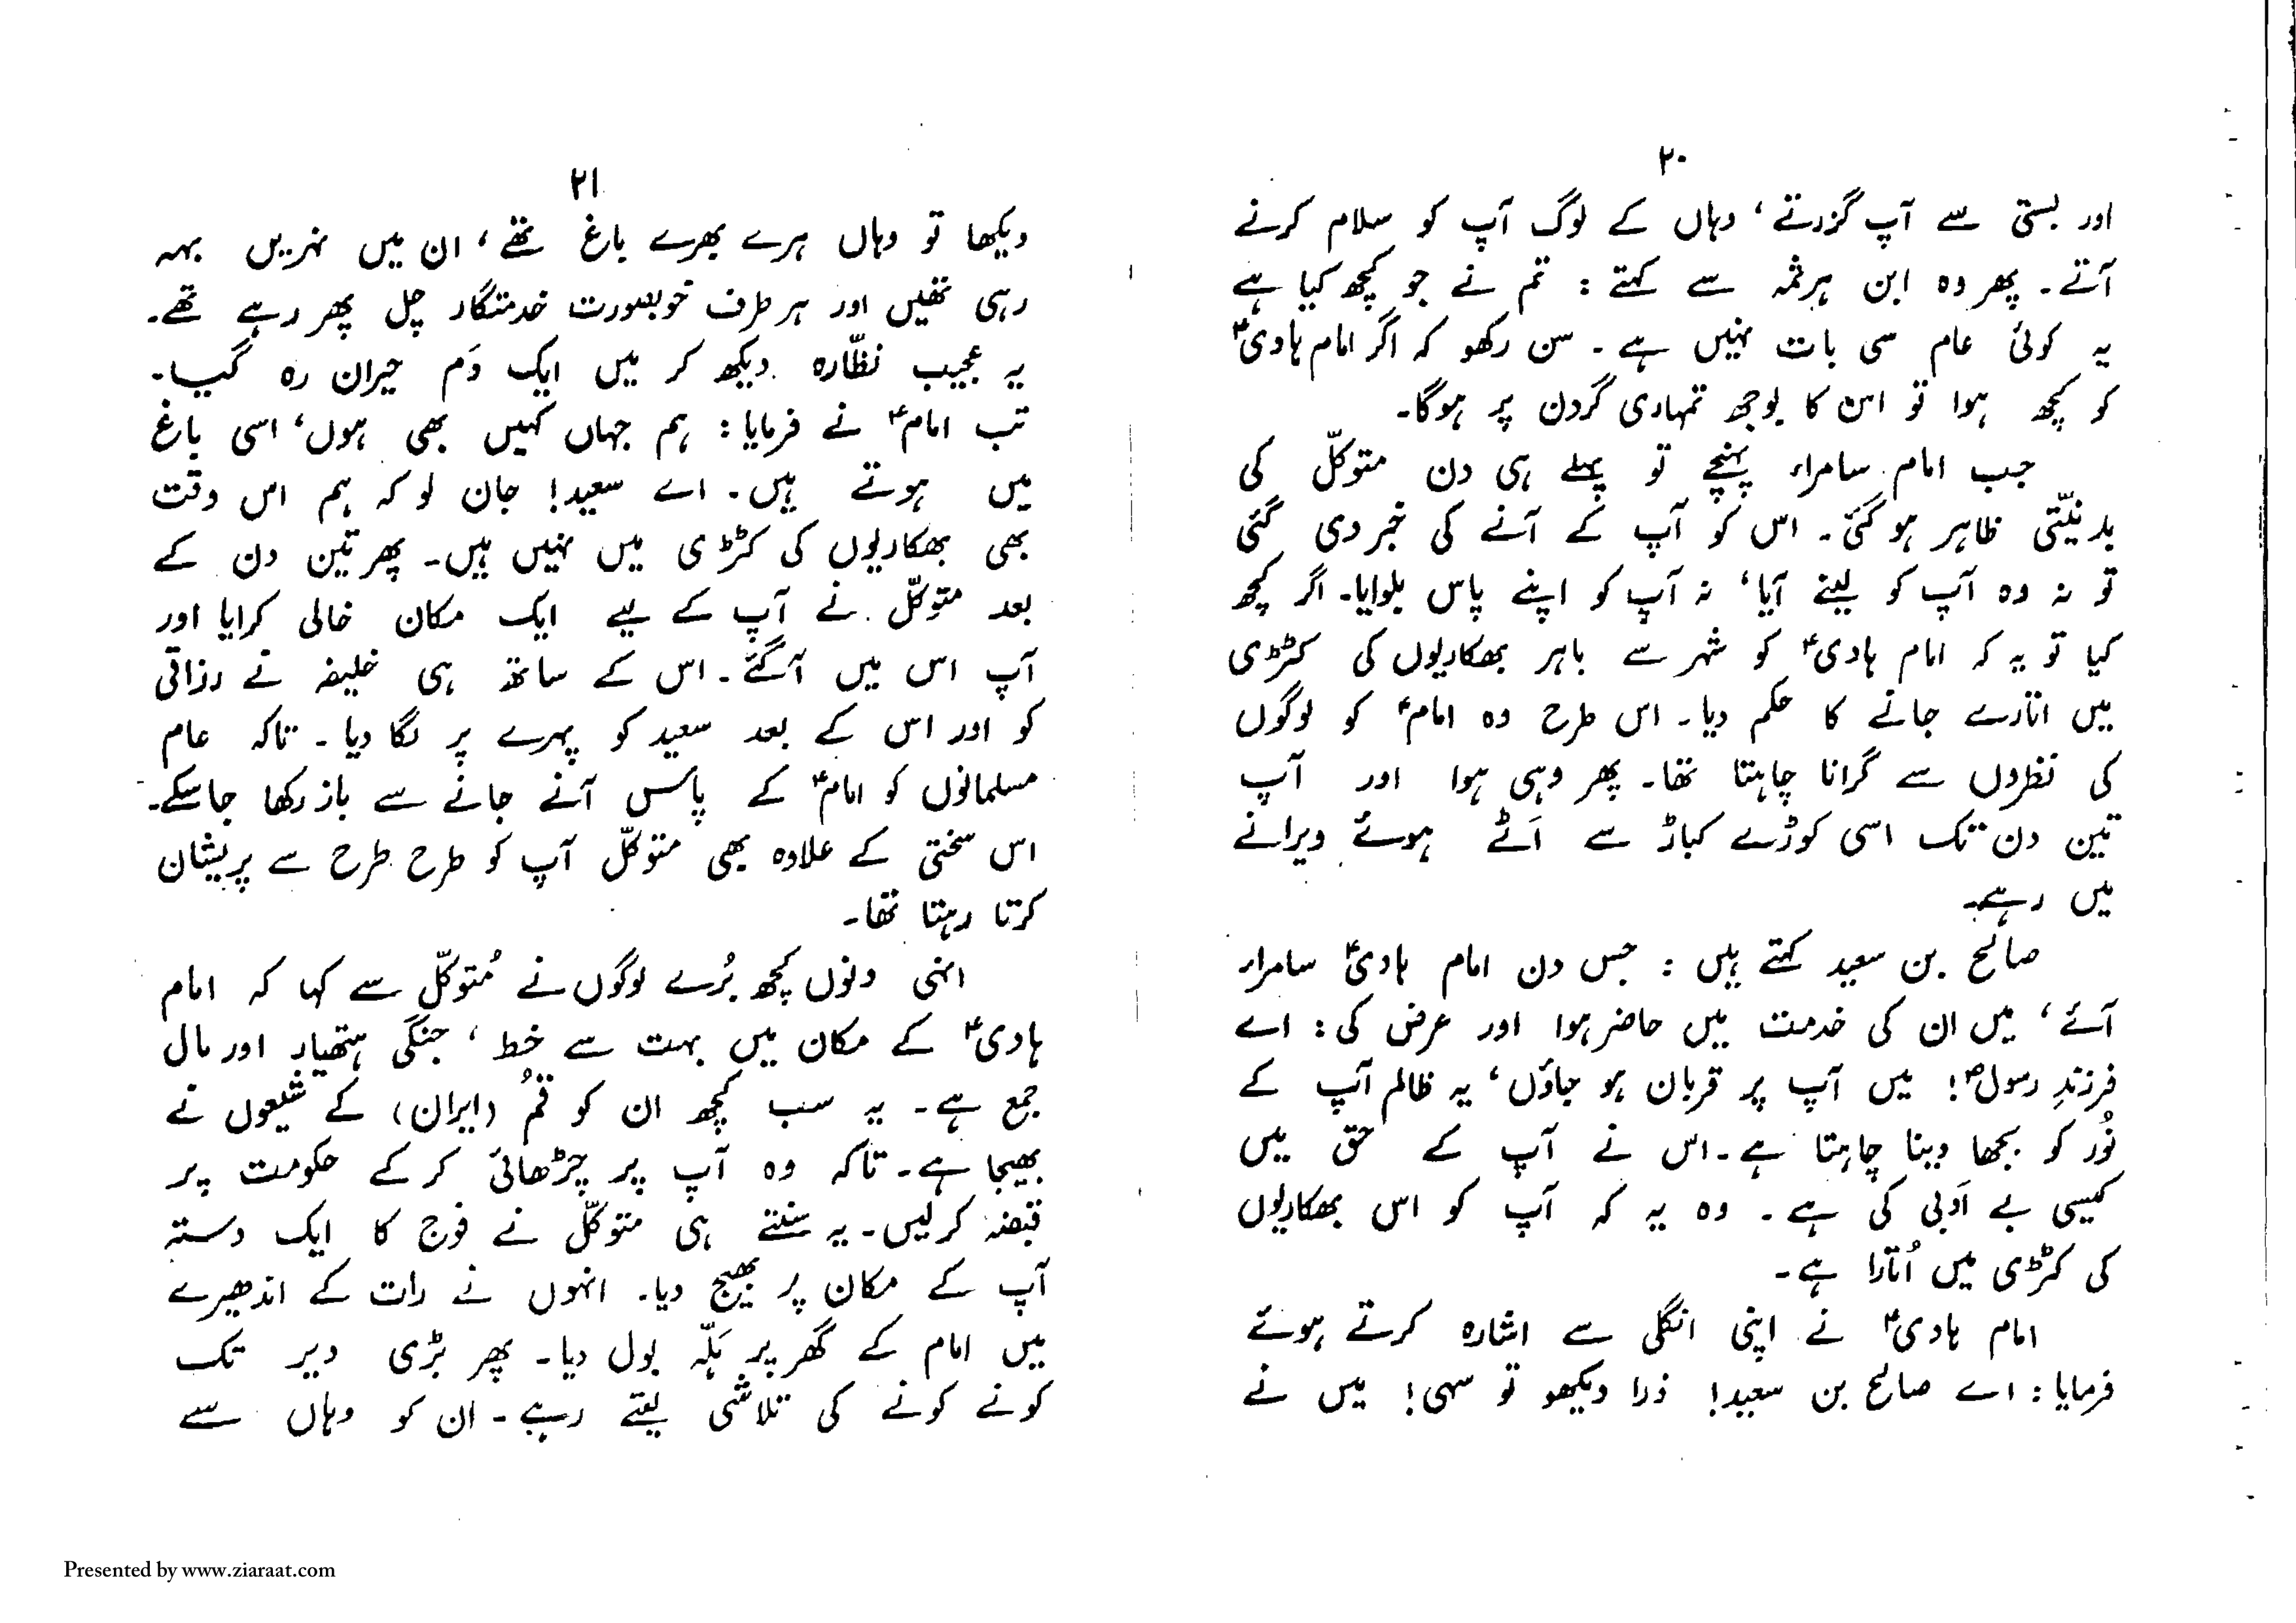 ۲۰
اور بستی سے آپ گزرتے، وہاں کے لوگ آپ کو سلام کرنے
آتے۔ پھر وہ ابن ہرثمہ سے کہتے: تم نے جو کچھ کیا ہے
یہ کوئی عام سی بات نہیں ہے۔ سن رکھو کہ اگر امام ہادیؑ
کو کچھ ہوا تو اس کا بوجھ تمہاری گردن پر ہوگا۔
جب امام سامراء پہنچے تو پہلے ہی دن متوکّل کی
بدنیّتی ظاہر ہوگئی۔ اس کو آپ کے آنے کی خبر دی گئی
تو نہ وہ آپ کو لینے آیا، نہ آپ کو اپنے پاس بلوایا۔ اگر کچھ
کیا تو یہ کہ امام ہادیؑ کو شہر سے باہر بھکاریوں کی کٹڑی
میں اتارے جانے کا حکم دیا۔ اس طرح وہ امامؑ کو لوگوں
کی نظروں سے گرانا چاہتا تھا۔ پھر وہی ہوا اور آپ
تین دن تک اسی کوڑے کباڑ سے اَٹے ہوئے ویرانے
میں رہے۔
صالح بن سعید کہتے ہیں: جس دن امام ہادیؑ سامراء
آئے، میں ان کی خدمت میں حاضر ہوا اور عرض کی: اے
فرزندِ رسولؐ! میں آپ پر قربان ہو جاؤں، یہ ظالم آپ کے
نُور کو بجھا دینا چاہتا ہے۔ اس نے آپ کے حق میں
کیسی بے اَدبی کی ہے۔ وہ یہ کہ آپ کو اس بھکاریوں
کی کٹڑی میں اُتارا ہے۔
امام ہادیؑ نے اپنی انگلی سے اشارہ کرتے ہوئے
فرمایا: اے صالح بن سعید! ذرا دیکھو تو سہی! میں نے
۲۱
دیکھا تو وہاں ہرے بھرے باغ تھے، ان میں نہریں بہہ
رہی تھیں اور ہر طرف خوبصورت خدمتگار چل پھر رہے تھے۔
یہ عجیب نظّارہ دیکھ کر میں ایک دَم حیران رہ گیا۔
تب امامؑ نے فرمایا: ہم جہاں کہیں بھی ہوں، اسی باغ
میں ہوتے ہیں۔ اے سعید! جان لو کہ ہم اس وقت
بھی بھکاریوں کی کٹڑی میں نہیں ہیں۔ پھر تین دن کے
بعد متوکّل نے آپ کے لیے ایک مکان خالی کرایا اور
آپ اس میں آگئے۔ اس کے ساتھ ہی خلیفہ نے رزاقی
کو اور اس کے بعد سعید کو پہرے پر لگا دیا۔ تاکہ عام
مسلمانوں کو امامؑ کے پاس آنے جانے سے باز رکھا جاسکے۔
اس سختی کے علاوہ بھی متوکّل آپ کو طرح طرح سے پریشان
کرتا رہتا تھا۔
انہی دنوں کچھ بُرے لوگوں نے مُتوکّل سے کہا کہ امام
ہادیؑ کے مکان میں بہت سے خط، جنگی ہتھیار اور مال
جمع ہے۔ یہ سب کچھ ان کو قُم (ایران) کے شیعوں نے
بھیجا ہے۔ تاکہ وہ آپ پر چڑھائی کر کے حکومت پر
قبضہ کرلیں۔ یہ سنتے ہی متوکّل نے فوج کا ایک دستہ
آپ کے مکان پر بھیج دیا۔ انہوں نے رات کے اندھیرے
میں امام کے گھر پر ہَلّہ بول دیا۔ پھر بڑی دیر تک
کونے کونے کی تلاشی لیتے رہے۔ ان کو وہاں سے
Presented by www.ziaraat.com